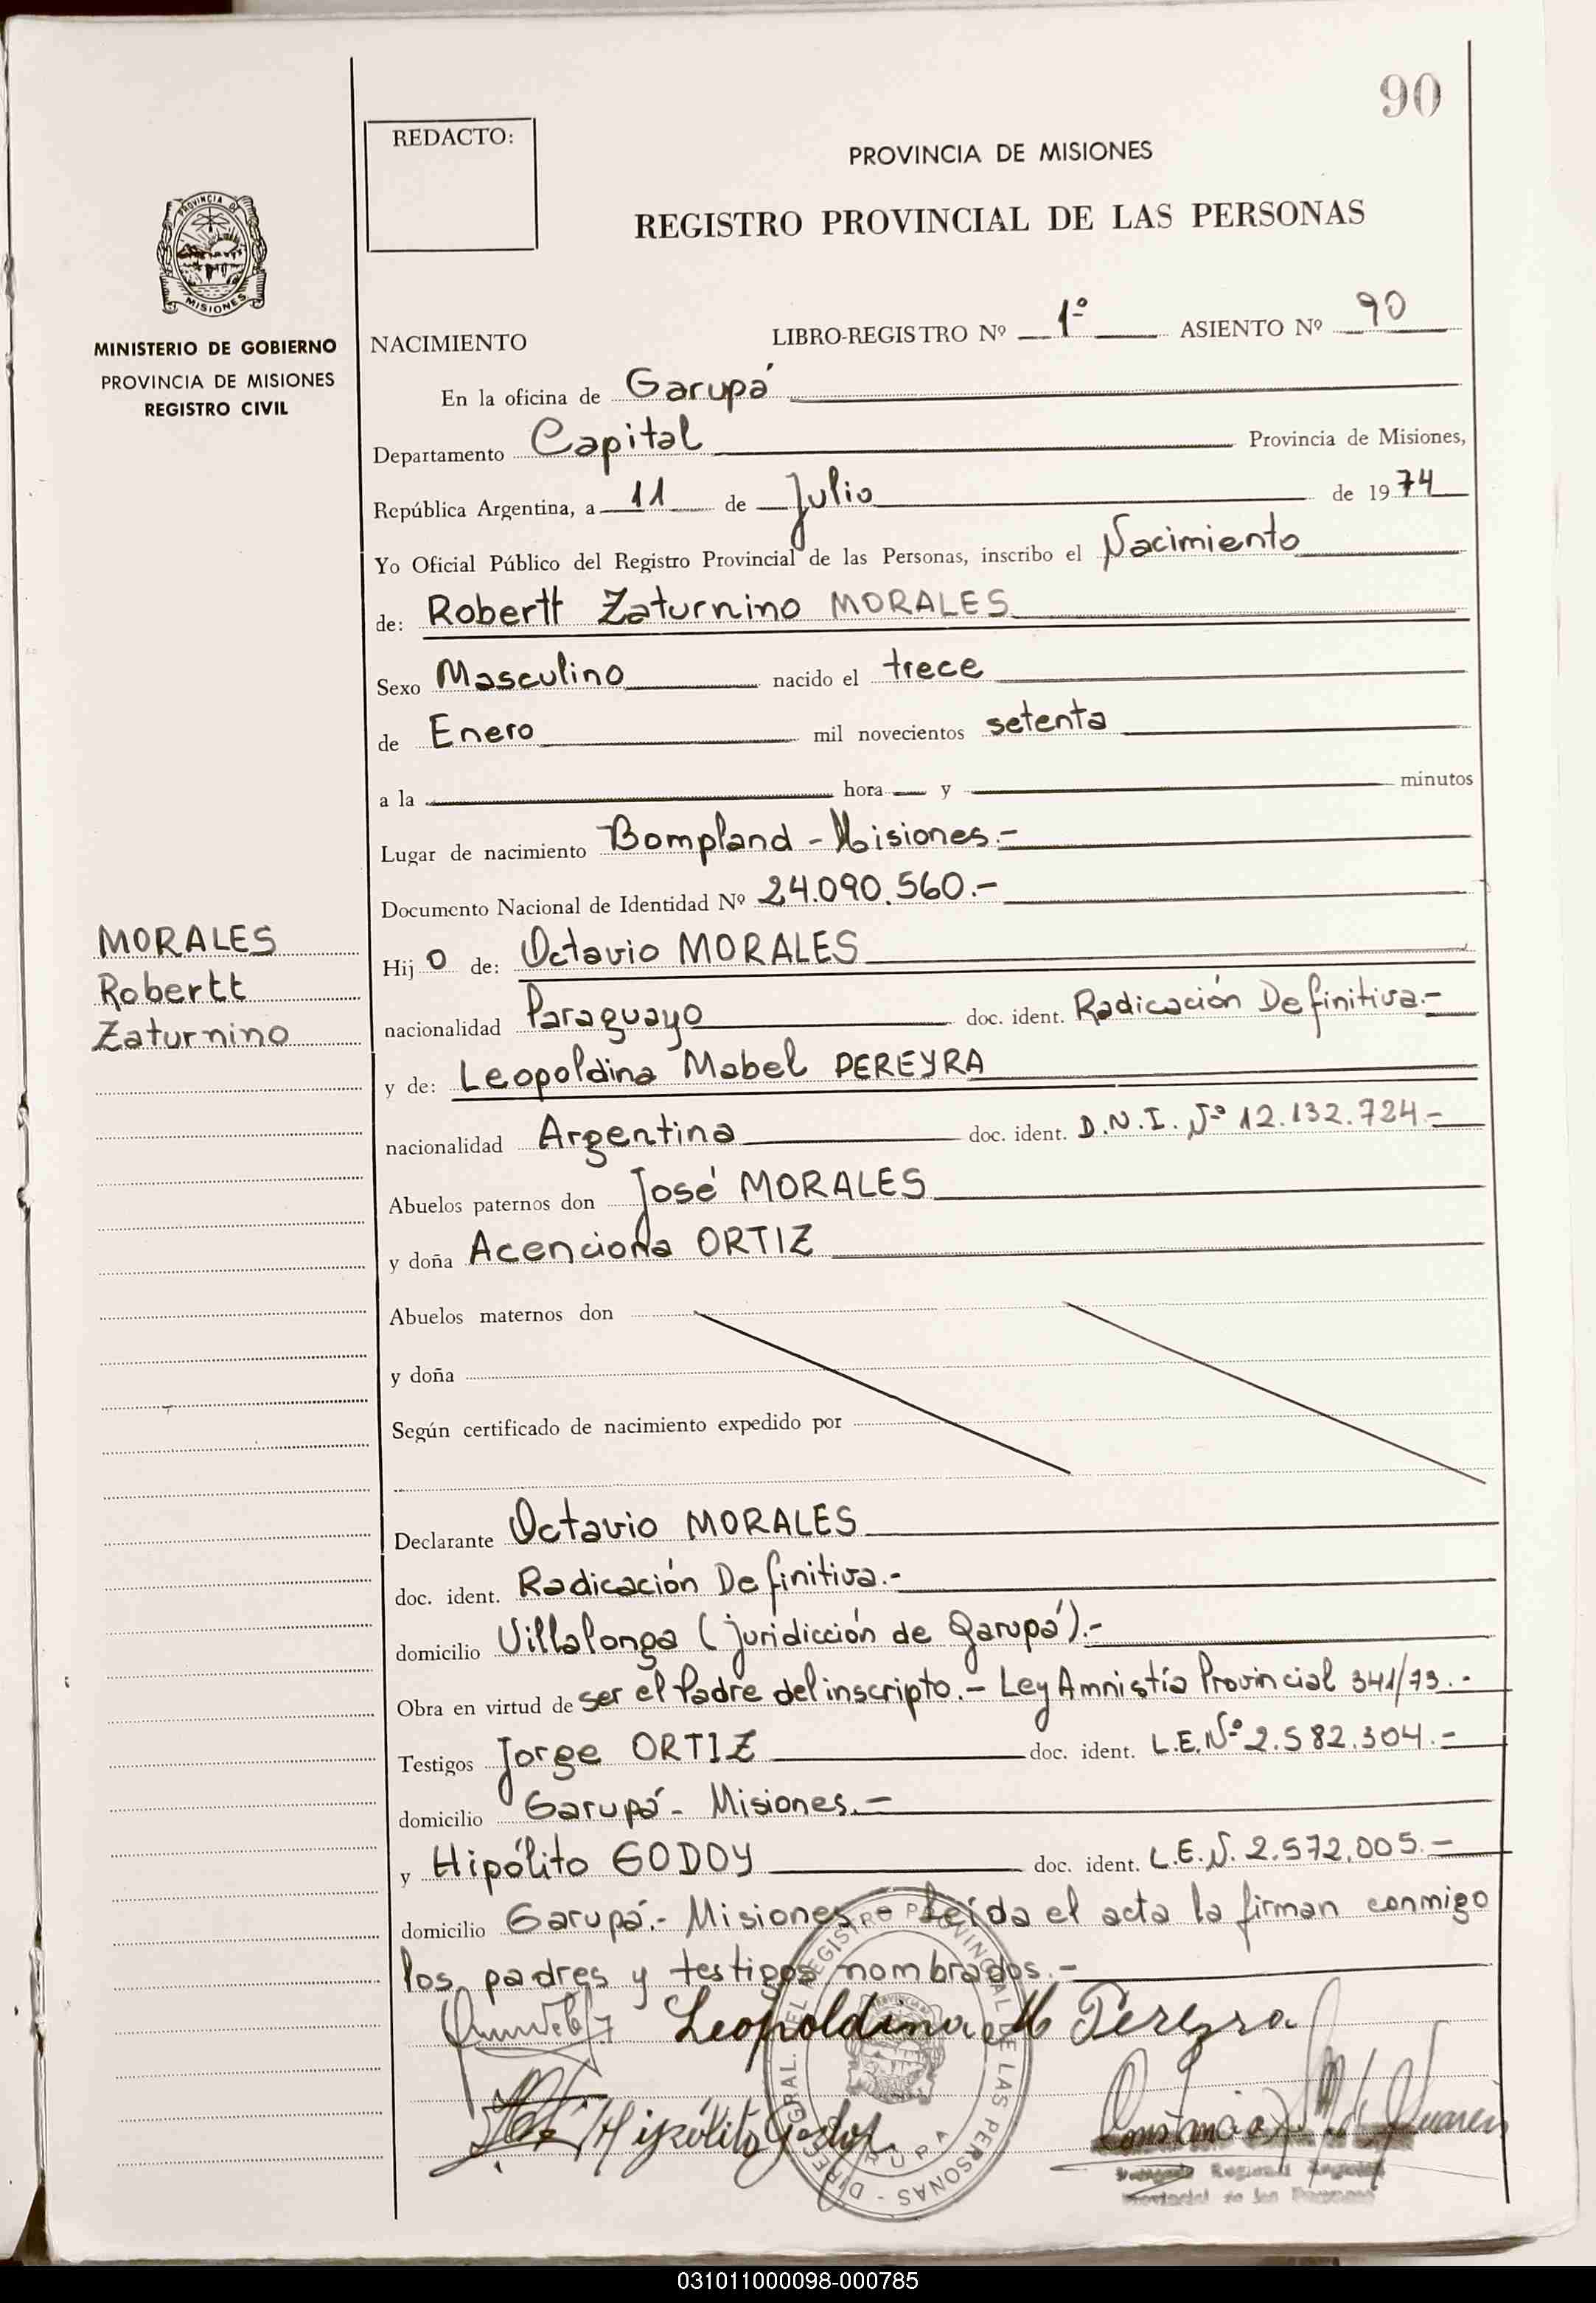 90
REDACTO:
PROVINCIA DE MISIONES
REGISTRO PROVINCIAL DE LAS PERSONAS
PROVINCIA DE
MISIONES
MINISTERIO DE GOBIERNO
PROVINCIA DE MISIONES
REGISTRO CIVIL
NACIMIENTO LIBRO-REGISTRO Nº 1º ASIENTO Nº 90
En la oficina de Garupá
Departamento Capital Provincia de Misiones,
República Argentina, a 11 de Julio de 1974
Yo Oficial Público del Registro Provincial de las Personas, inscribo el Nacimiento
de: Robertt Zaturnino MORALES
Sexo Masculino nacido el trece
de Enero mil novecientos setenta
a la hora y minutos
Lugar de nacimiento Bompland - Misiones.-
Documento Nacional de Identidad Nº 24.090.560.-
MORALES
Robertt
Zaturnino
Hijo de: Octavio MORALES
nacionalidad Paraguayo doc. ident. Radicación Definitiva.-
y de: Leopoldina Mabel PEREYRA
nacionalidad Argentina doc. ident. D.N.I. Nº 12.132.724.-
Abuelos paternos don José MORALES
y doña Acenciona ORTIZ
Abuelos maternos don
y doña
Según certificado de nacimiento expedido por
Declarante Octavio MORALES
doc. ident. Radicación Definitiva.-
domicilio Villalonga (juridicción de Garupá).-
Obra en virtud de ser el Padre del inscripto.- Ley Amnistía Provincial 341/73.-
Testigos Jorge ORTIZ doc. ident. L.E. Nº 2.582.304.-
domicilio Garupá - Misiones.-
y Hipólito GODOY doc. ident. L.E.N. 2.572.005.-
domicilio Garupá.- Misiones.- Leída el acta la firman conmigo
los padres y testigos nombrados.-
Leopoldina M Pereyra
Hipólito Godoy
DIREC. GRAL. EL REGISTRO PROVINCIAL DE LAS PERSONAS
031011000098-000785